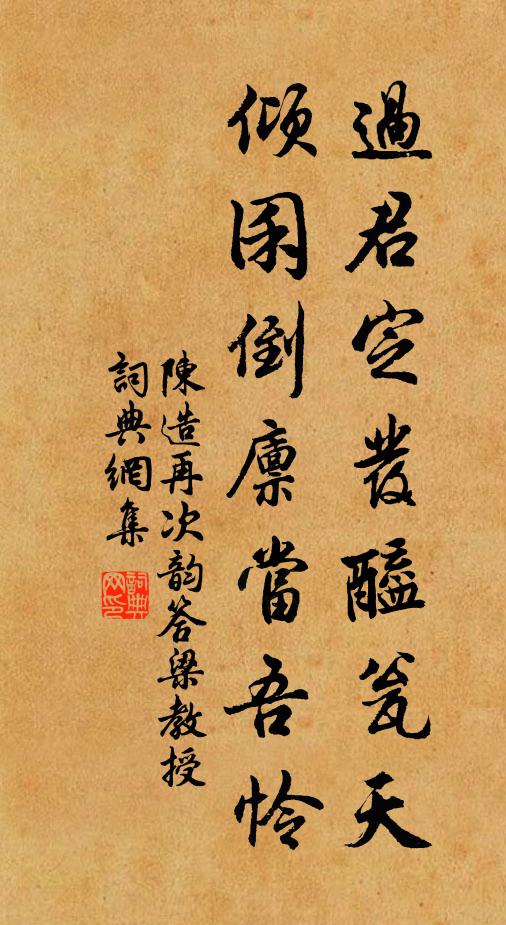 過君定發醯瓮天
傾囷倒廩當吾怜
陳造再次韵答梁教授
詞典網集
詞典网印